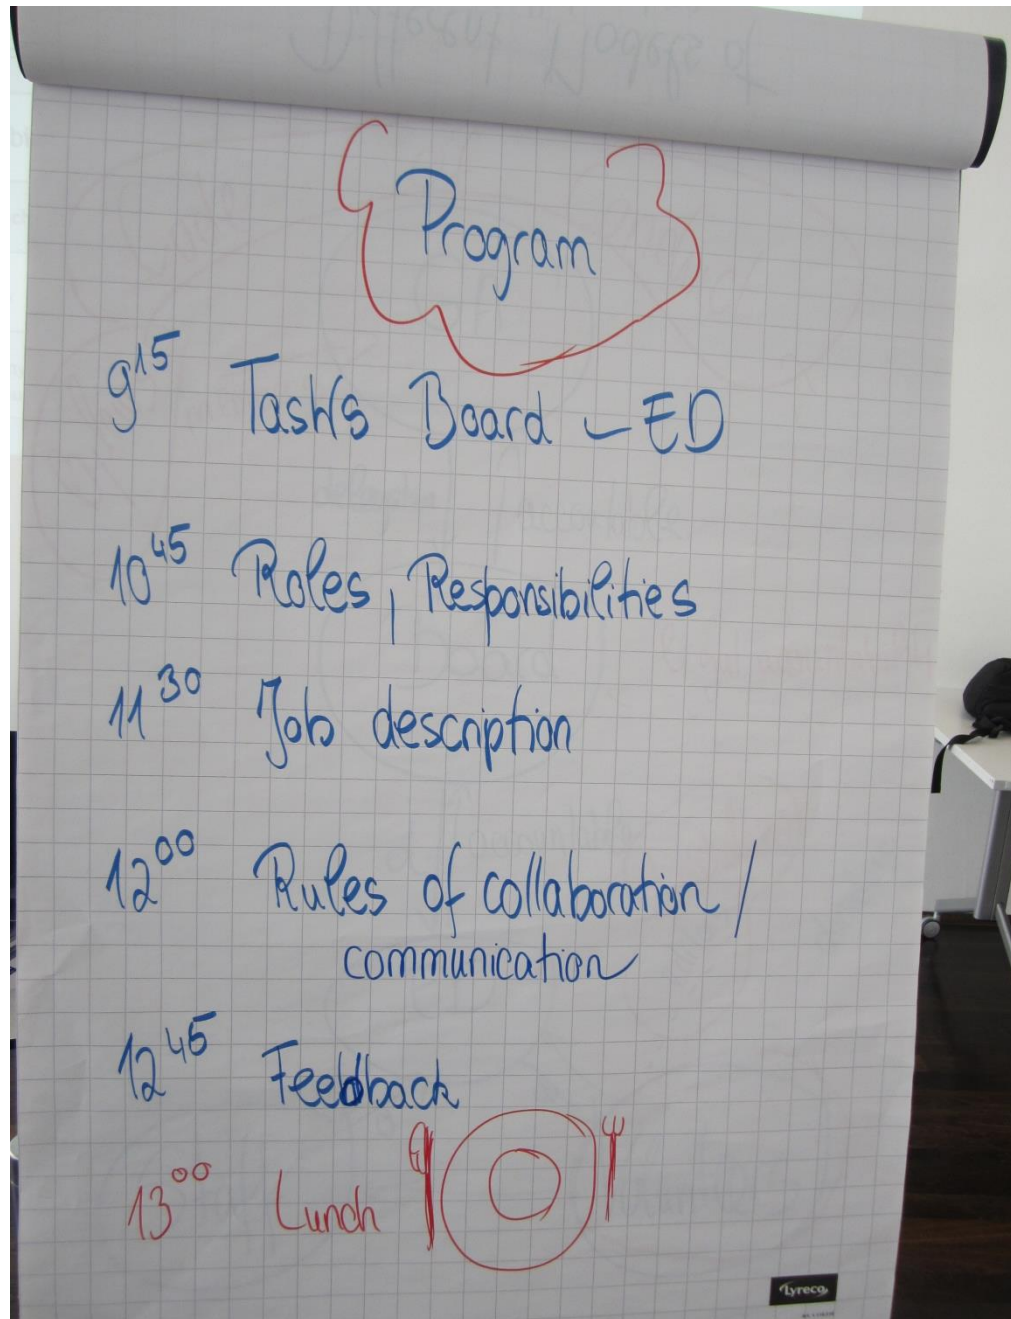 Different Models of
Program
9¹⁵ Tasks Board - ED
10⁴⁵ Roles, Responsibilities
11³⁰ Job description
12⁰⁰ Rules of collaboration /
communication
12⁴⁵ Feedback
13⁰⁰ Lunch
Lyreco